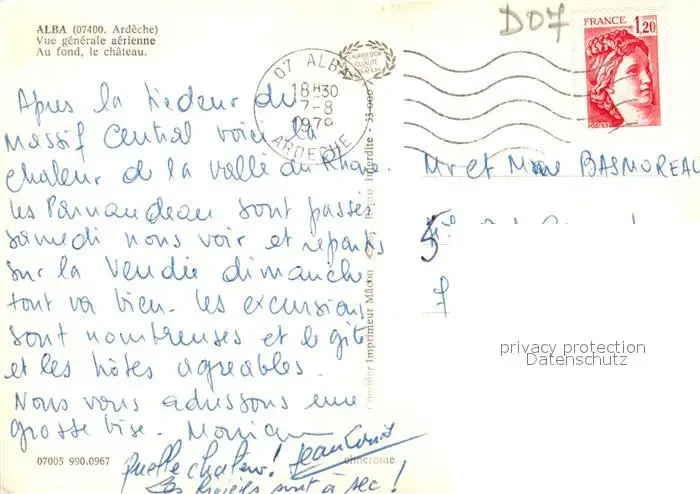 ALBA (07400. Ardèche)
Vue générale aérienne
Au fond, le château.
D07
FRANCE 1,20
POSTES
07 ALBA
18H30
7-8
1979
ARDECHE
Après la tiedeur du
Massif Central voici la
chaleur de la vallée du Rhône.
Les Parnaudeau sont passés
samedi nous voir et repartis
sur la Vendée dimanche
tout va bien. Les excursions
sont nombreuses et le gîte
et les hôtes agréables.
Nous vous adressons une
grosse bise. Monique
Quelle chaleur! Jean Louis
Les rivières sont à sec!
Mr et Mme BASMOREAU
5
7
privacy protection
Datenschutz
07005 990.0967
cimcrome
Combier Imprimeur Mâcon Interdite - 35 000